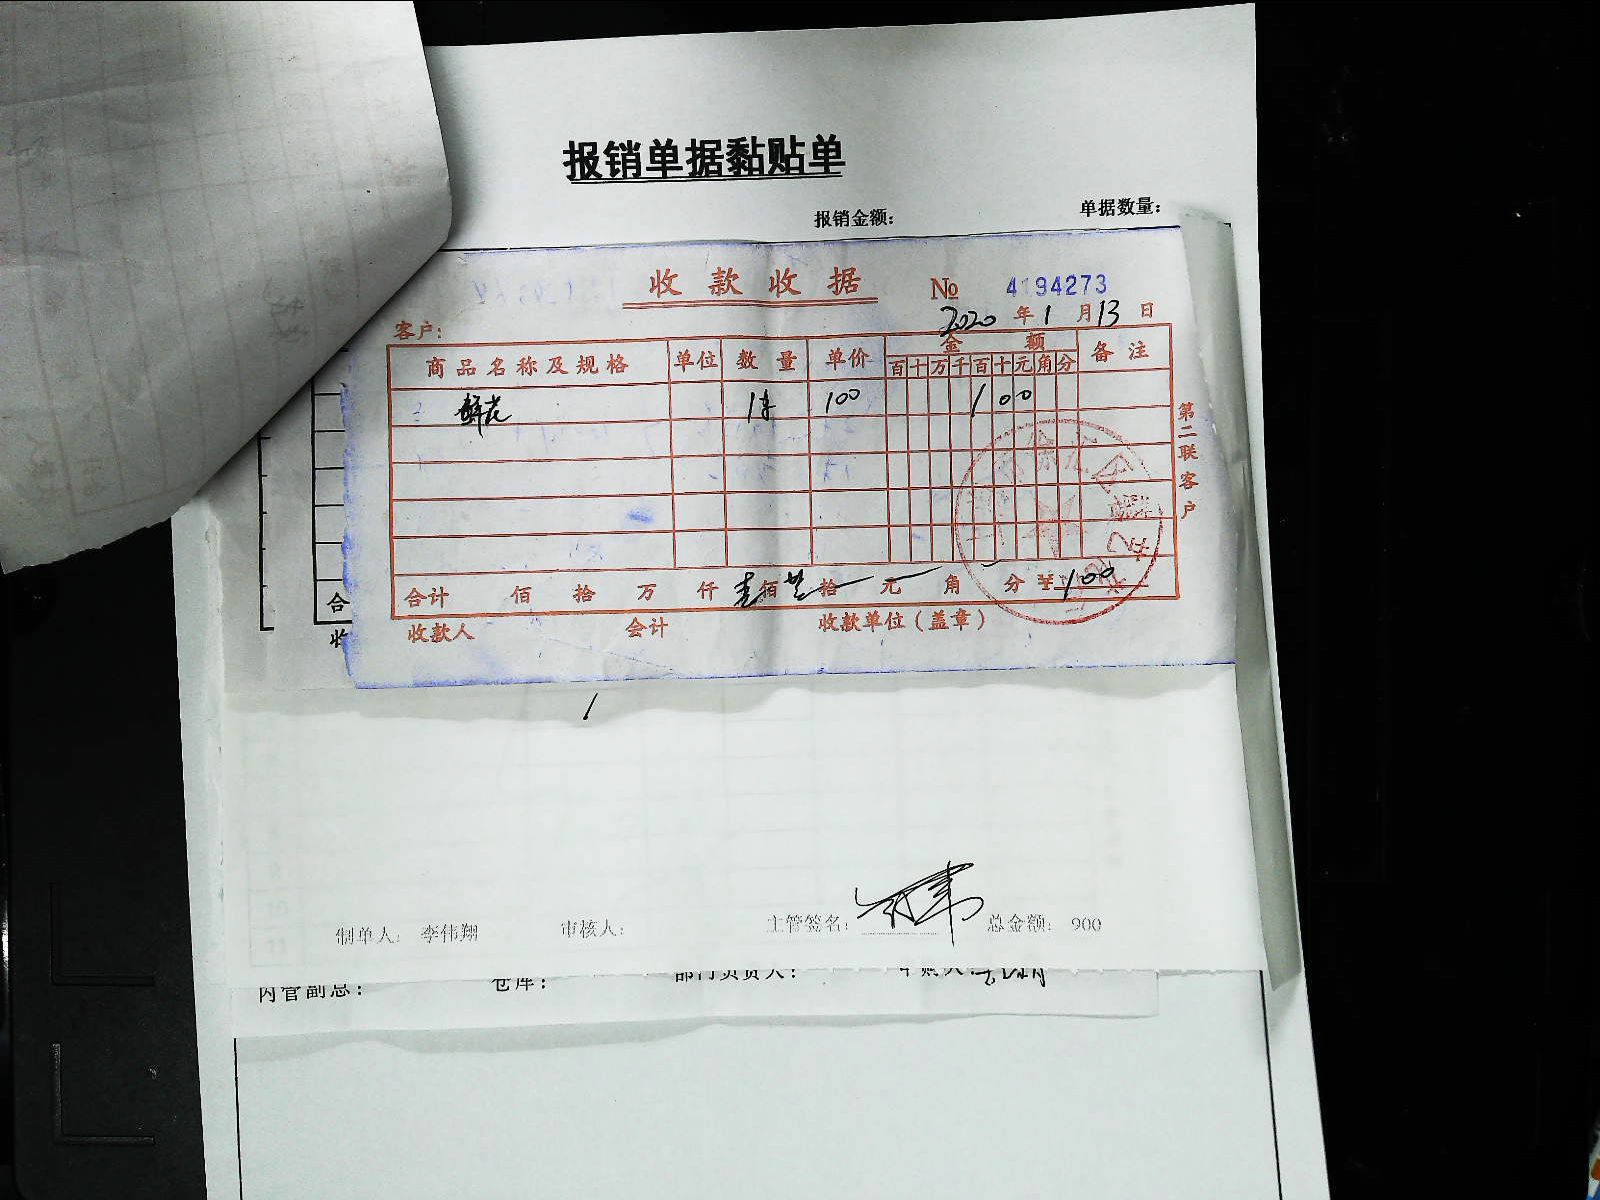 报销单据黏贴单
报销金额: 单据数量:
收款收据 № 4194273
2020年1月13日
客户:
商品名称及规格 单位 数量 单价 金额 备注
百十万千百十元角分
鲜花 1束 100 100
第二联客户
合计 佰 拾 万 仟 壹佰 拾 元 角 分 ¥100
收款人 会计 收款单位(盖章)
合
收
制单人: 李伟翔 审核人: 主管签名: 总金额: 900
内管副总: 仓库: 部门负责人: 申购人: